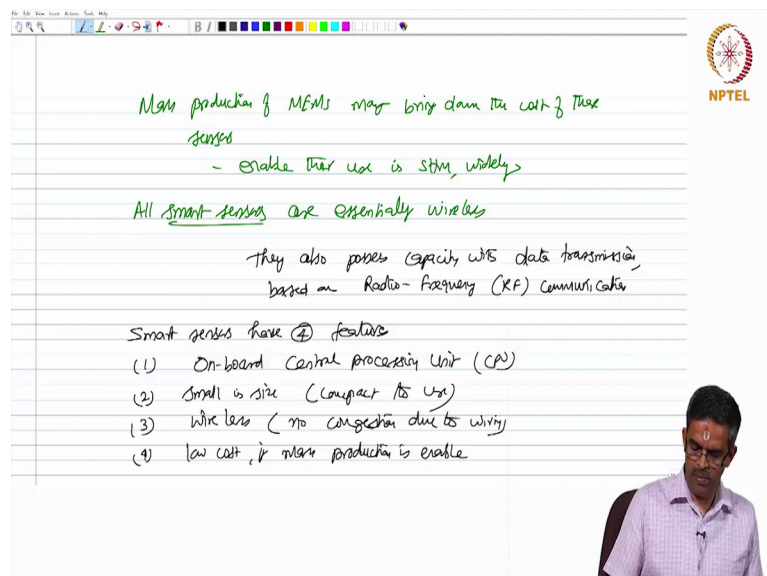 File Edit View Insert Actions Tools Help
NPTEL
Mass production of MEMs may bring down the cost of these
sensors
- enable their use is SHM, widely
All smart sensors are essentially wireless
They also posses capacity with data transmission,
based on Radio-frequency (RF) communication
Smart sensors have 4 feature
(1) On-board Central processing Unit (CPU)
(2) Small in size (compact to use)
(3) Wireless (no congestion due to wiring)
(4) low cost, if mass production is enable